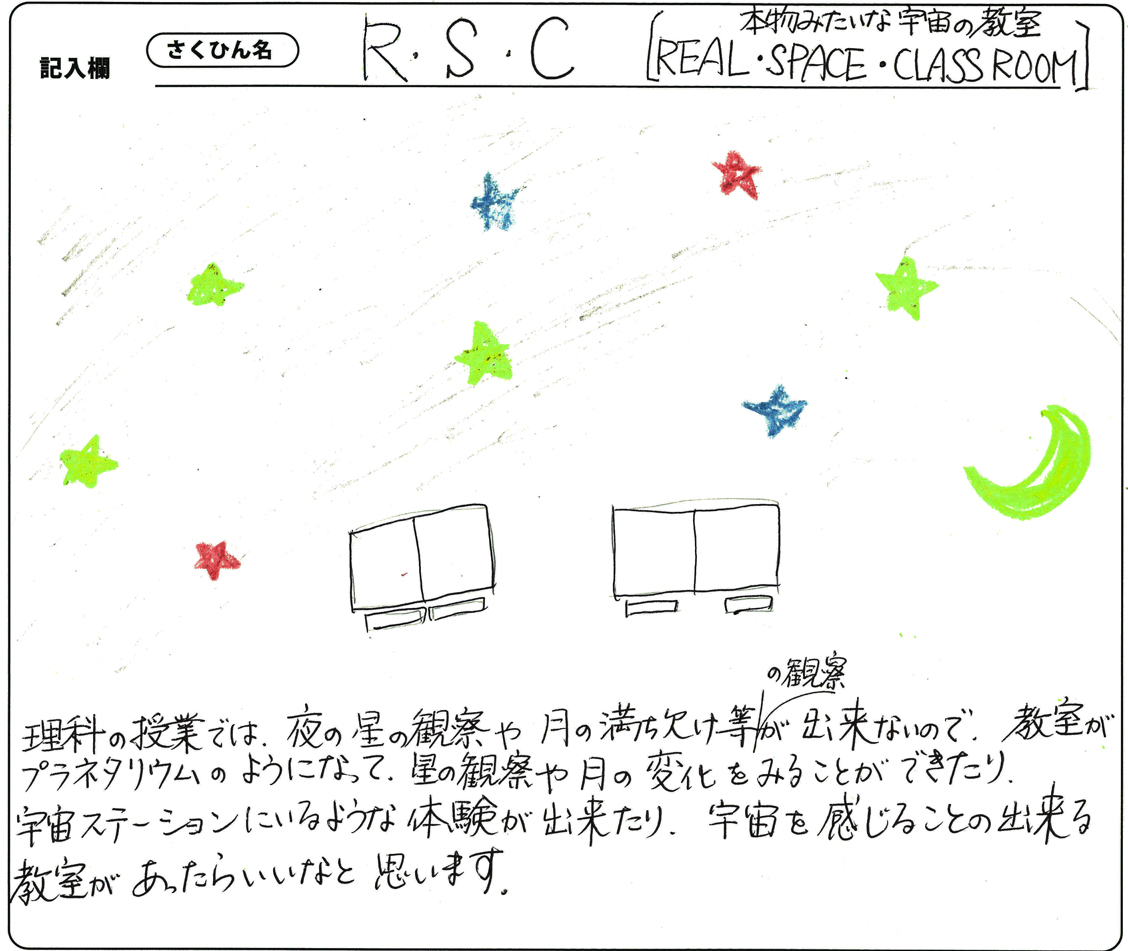 記入欄
さくひん名
R・S・C
本物みたいな宇宙の教室
[REAL・SPACE・CLASS ROOM]
の観察
理科の授業では、夜の星の観察や月の満ち欠け等が出来ないので、教室が
プラネタリウムのようになって、星の観察や月の変化をみることができたり、
宇宙ステーションにいるような体験が出来たり、宇宙を感じることの出来る
教室があったらいいなと思います。